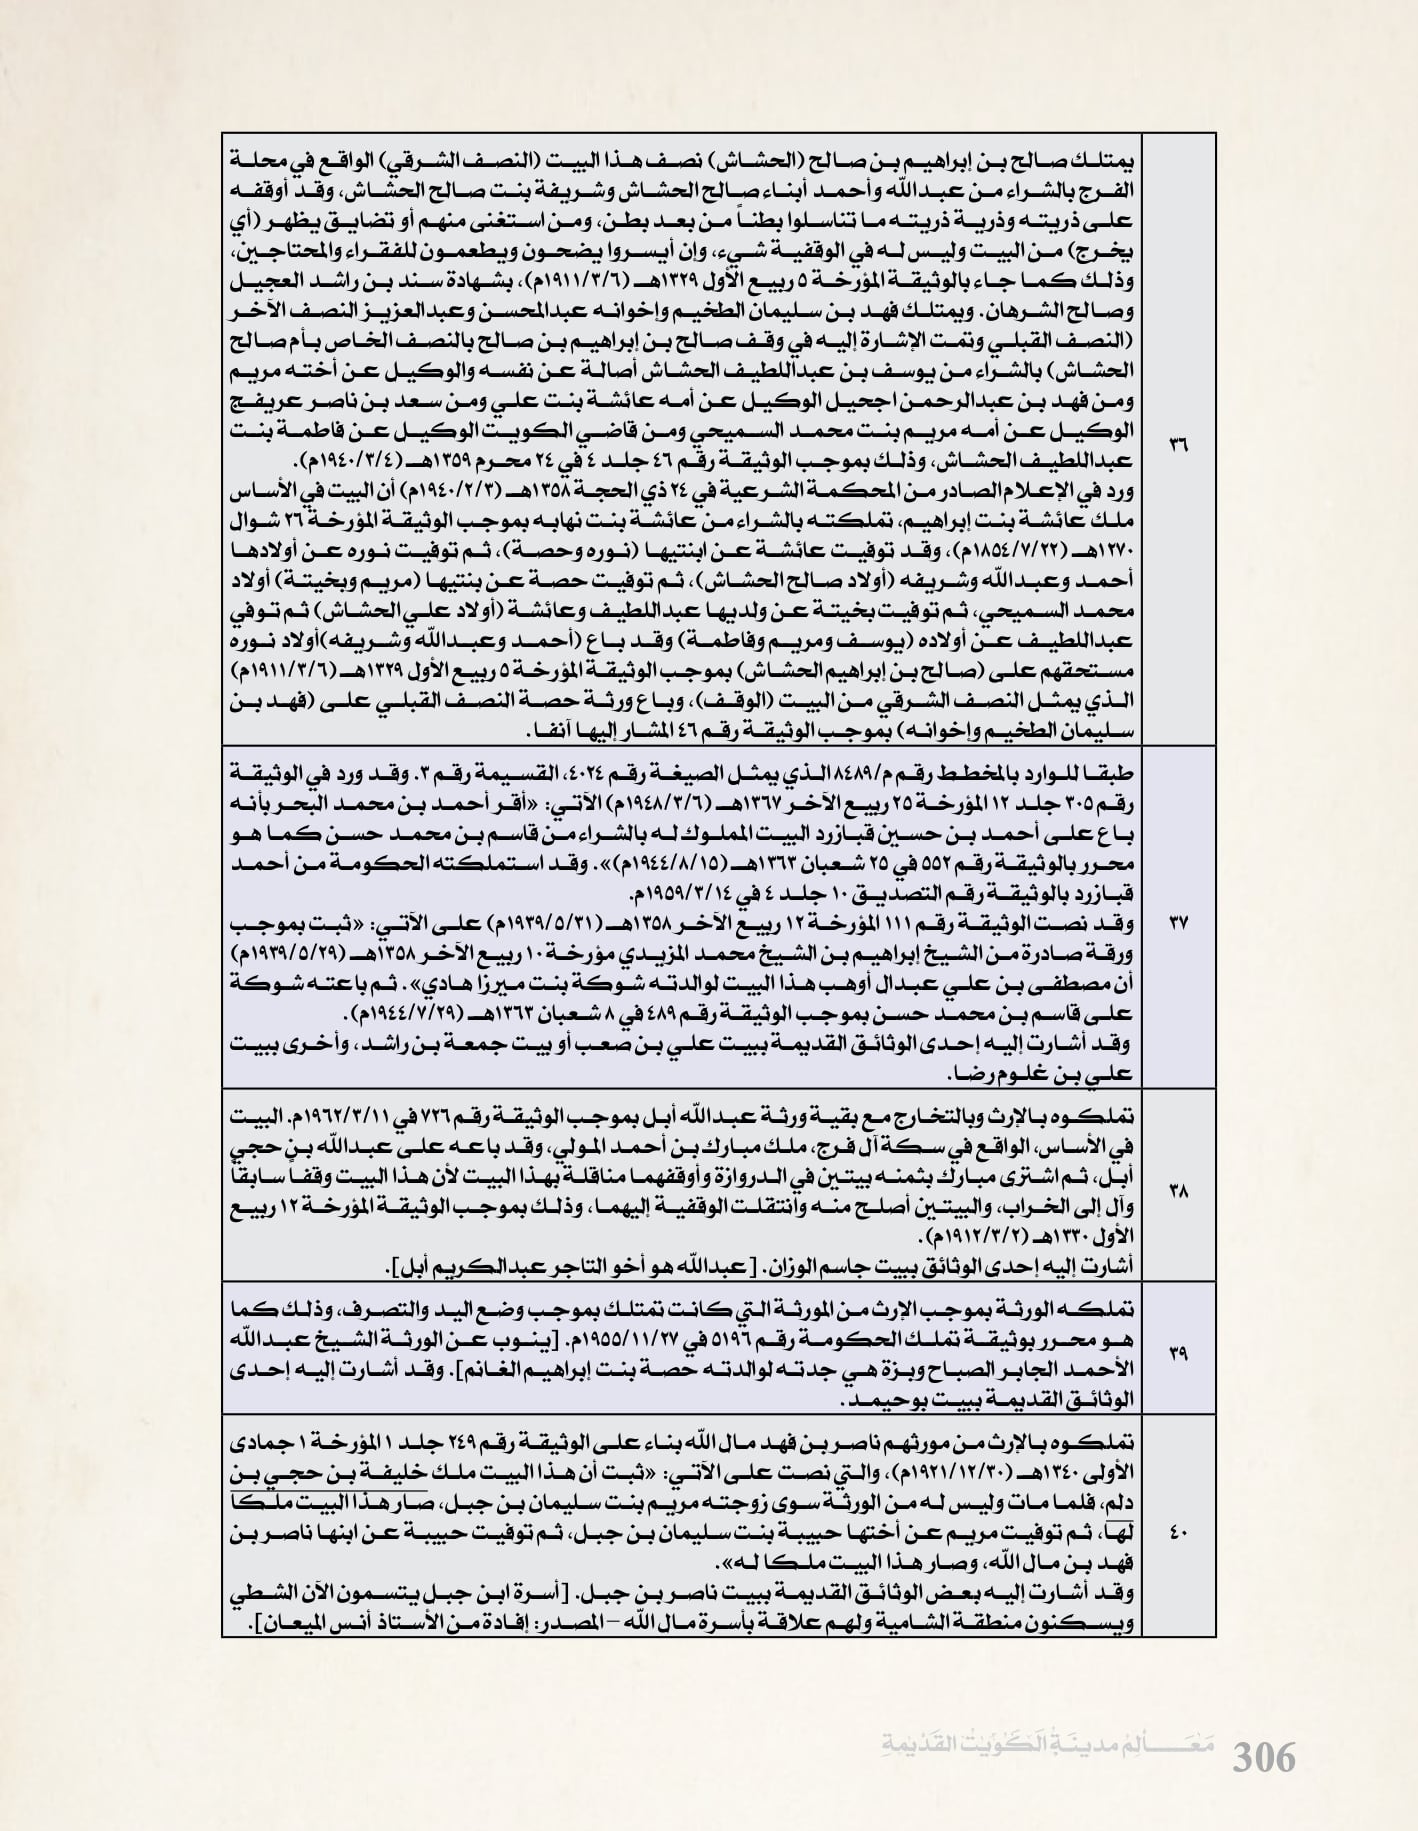 يمتلك صالح بن إبراهيم بن صالح (الحشاش) نصف هذا البيت (النصف الشرقي) الواقع في محلة
الفرج بالشراء من عبدالله وأحمد أبناء صالح الحشاش وشريفة بنت صالح الحشاش، وقد أوقفه
على ذريته وذرية ذريته ما تناسلوا بطناً من بعد بطن، ومن استغنى منهم أو تضايق يظهر (أي
يخرج) من البيت وليس له في الوقفية شيء، وإن أيسروا يضحون ويطعمون للفقراء والمحتاجين،
وذلك كما جاء بالوثيقة المؤرخة ٥ ربيع الأول ١٣٢٩هـ (١٩١١/٣/٦م)، بشهادة سند بن راشد العجيل
وصالح الشرهان. ويمتلك فهد بن سليمان الطخيم وإخوانه عبدالمحسن وعبدالعزيز النصف الآخر
(النصف القبلي وتمت الإشارة إليه في وقف صالح بن إبراهيم بن صالح بالنصف الخاص بأم صالح
الحشاش) بالشراء من يوسف بن عبداللطيف الحشاش أصالة عن نفسه والوكيل عن أخته مريم
ومن فهد بن عبدالرحمن اجحيل الوكيل عن أمه عائشة بنت علي ومن سعد بن ناصر عريفج
الوكيل عن أمه مريم بنت محمد السميحي ومن قاضي الكويت الوكيل عن فاطمة بنت
٣٦
عبداللطيف الحشاش، وذلك بموجب الوثيقة رقم ٤٦ جلد ٤ في ٢٤ محرم ١٣٥٩هـ (١٩٤٠/٣/٤م).
ورد في الإعلام الصادر من المحكمة الشرعية في ٢٤ ذي الحجة ١٣٥٨هـ (١٩٤٠/٢/٣م) أن البيت في الأساس
ملك عائشة بنت إبراهيم، تملكته بالشراء من عائشة بنت نهابه بموجب الوثيقة المؤرخة ٢٦ شوال
١٢٧٠هـ (١٨٥٤/٧/٢٢م)، وقد توفيت عائشة عن ابنتيها (نوره وحصة)، ثم توفيت نوره عن أولادها
أحمد وعبدالله وشريفه (أولاد صالح الحشاش)، ثم توفيت حصة عن بنتيها (مريم وبخيتة) أولاد
محمد السميحي، ثم توفيت بخيتة عن ولديها عبداللطيف وعائشة (أولاد علي الحشاش) ثم توفي
عبداللطيف عن أولاده (يوسف ومريم وفاطمة) وقد باع (أحمد وعبدالله وشريفه)أولاد نوره
مستحقهم على (صالح بن إبراهيم الحشاش) بموجب الوثيقة المؤرخة ٥ ربيع الأول ١٣٢٩هـ (١٩١١/٣/٦م)
الذي يمثل النصف الشرقي من البيت (الوقف)، وباع ورثة حصة النصف القبلي على (فهد بن
سليمان الطخيم وإخوانه) بموجب الوثيقة رقم ٤٦ المشار إليها آنفا.
طبقا للوارد بالمخطط رقم م/٨٤٨٩ الذي يمثل الصيغة رقم ٤٠٢٤، القسيمة رقم ٣. وقد ورد في الوثيقة
رقم ٣٠٥ جلد ١٢ المؤرخة ٢٥ ربيع الآخر ١٣٦٧هـ (١٩٤٨/٣/٦م) الآتي: «أقر أحمد بن محمد البحر بأنه
باع على أحمد بن حسين قبازرد البيت المملوك له بالشراء من قاسم بن محمد حسن كما هو
محرر بالوثيقة رقم ٥٥٢ في ٢٥ شعبان ١٣٦٣هـ (١٩٤٤/٨/١٥م)». وقد استملكته الحكومة من أحمد
قبازرد بالوثيقة رقم التصديق ١٠ جلد ٤ في ١٩٥٩/٣/١٤م.
٣٧
وقد نصت الوثيقة رقم ١١١ المؤرخة ١٢ ربيع الآخر ١٣٥٨هـ (١٩٣٩/٥/٣١م) على الآتي: «ثبت بموجب
ورقة صادرة من الشيخ إبراهيم بن الشيخ محمد المزيدي مؤرخة ١٠ ربيع الآخر ١٣٥٨هـ (١٩٣٩/٥/٢٩م)
أن مصطفى بن علي عبدال أوهب هذا البيت لوالدته شوكة بنت ميرزا هادي». ثم باعته شوكة
على قاسم بن محمد حسن بموجب الوثيقة رقم ٤٨٩ في ٨ شعبان ١٣٦٣هـ (١٩٤٤/٧/٢٩م).
وقد أشارت إليه إحدى الوثائق القديمة ببيت علي بن صعب أو بيت جمعة بن راشد، وأخرى ببيت
علي بن غلوم رضا.
تملكوه بالإرث وبالتخارج مع بقية ورثة عبدالله أبل بموجب الوثيقة رقم ٧٢٦ في ١٩٦٢/٣/١١م. البيت
في الأساس، الواقع في سكة آل فرج، ملك مبارك بن أحمد المولي، وقد باعه على عبدالله بن حجي
أبل، ثم اشترى مبارك بثمنه بيتين في الدروازة وأوقفهما مناقلة بهذا البيت لأن هذا البيت وقفاً سابقاً
٣٨
وآل إلى الخراب، والبيتين أصلح منه وانتقلت الوقفية إليهما، وذلك بموجب الوثيقة المؤرخة ١٢ ربيع
الأول ١٣٣٠هـ (١٩١٢/٣/٢م).
أشارت إليه إحدى الوثائق ببيت جاسم الوزان. [عبدالله هو أخو التاجر عبدالكريم أبل].
تملكه الورثة بموجب الإرث من المورثة التي كانت تمتلك بموجب وضع اليد والتصرف، وذلك كما
هو محرر بوثيقة تملك الحكومة رقم ٥١٩٦ في ١٩٥٥/١١/٢٧م. [ينوب عن الورثة الشيخ عبدالله
٣٩
الأحمد الجابر الصباح وبزة هي جدته لوالدته حصة بنت إبراهيم الغانم]. وقد أشارت إليه إحدى
الوثائق القديمة ببيت بوحيمد.
تملكوه بالإرث من مورثهم ناصر بن فهد مال الله بناء على الوثيقة رقم ٢٤٩ جلد ١ المؤرخة ١ جمادى
الأولى ١٣٤٠هـ (١٩٢١/١٢/٣٠م)، والتي نصت على الآتي: «ثبت أن هذا البيت ملك خليفة بن حجي بن
دلم، فلما مات وليس له من الورثة سوى زوجته مريم بنت سليمان بن جبل، صار هذا البيت ملكا
٤٠
لها، ثم توفيت مريم عن أختها حبيبة بنت سليمان بن جبل، ثم توفيت حبيبة عن ابنها ناصر بن
فهد بن مال الله، وصار هذا البيت ملكا له».
وقد أشارت إليه بعض الوثائق القديمة ببيت ناصر بن جبل. [أسرة ابن جبل يتسمون الآن الشطي
ويسكنون منطقة الشامية ولهم علاقة بأسرة مال الله – المصدر: إفادة من الأستاذ أنس الميعان].
306 مَعَالِم مدينَة الكَوَيت القَدْيمةِ